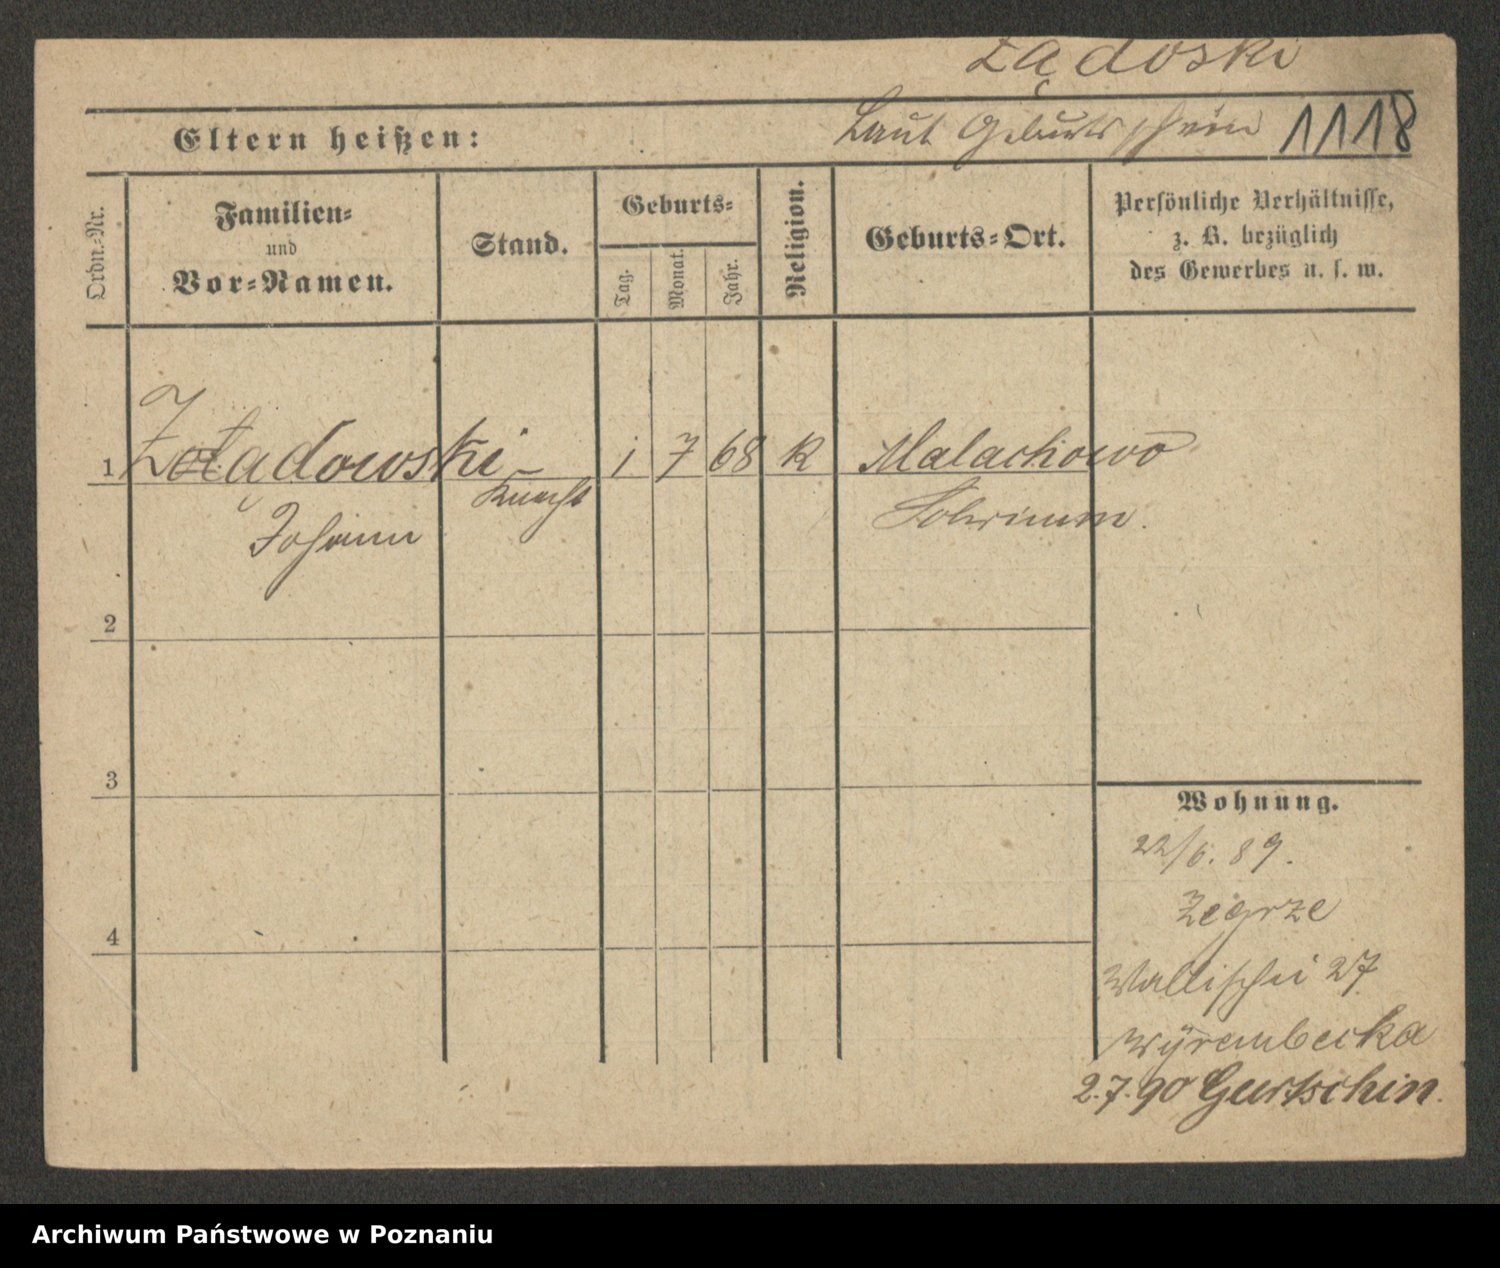 Żądoski
Eltern heißen:
Laut Geburtsschein 1118
Ordn.-Nr.
Familien-
und
Vor-Namen.
Stand.
Geburts-
Tag.
Monat.
Jahr.
Religion.
Geburts-Ort.
Persönliche Verhältnisse,
z. B. bezüglich
des Gewerbes u. s. w.
1 Żołądowski 1 7 68 K Malachowo
Knecht
Johann
2
3
4
Wohnung.
22/6. 89.
Zegrze
Wallischei 27
Wyrembecka
2.7.90 Gurtschin.